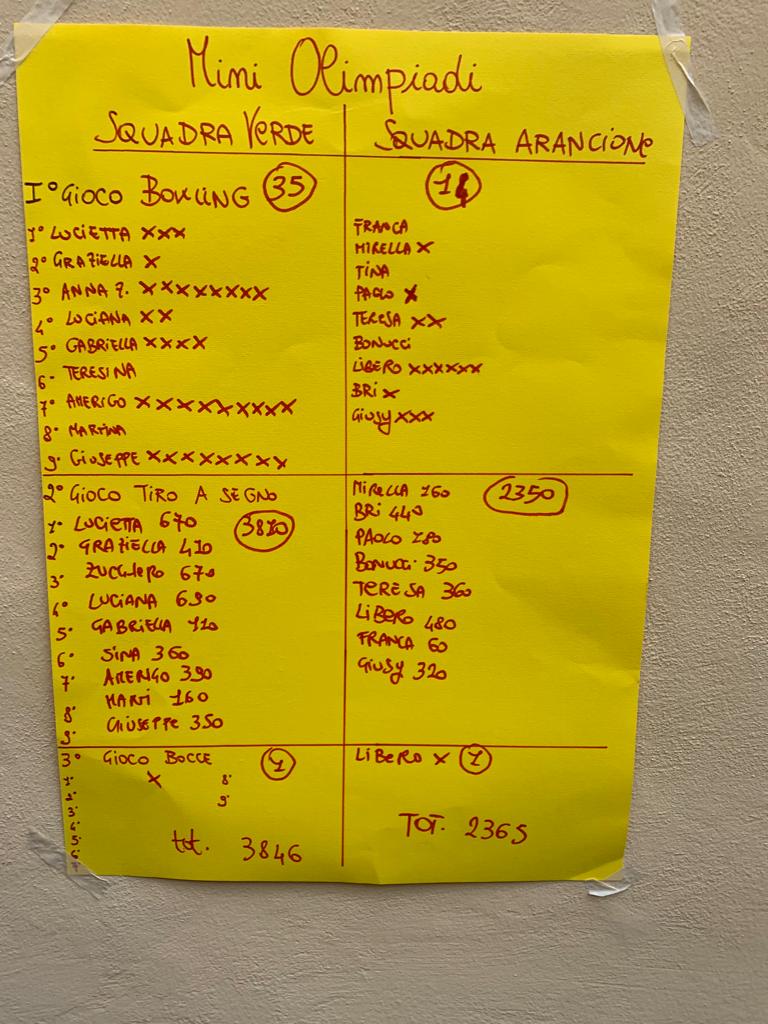 Mini Olimpiadi
SQUADRA VERDE
I° GIOCO BOWLING 35
1° LUCIETTA XXX
2° GRAZIELLA X
3° ANNA Z. XXXXXXXX
4° LUCIANA XX
5° GABRIELLA XXXX
6° TERESINA
7° AMERIGO XXXXXXXXX
8° MARTINA
9° GIUSEPPE XXXXXXXX
SQUADRA ARANCIONE
14
FRANCA
MIRELLA X
TINA
PAOLO X
TERESA XX
BONUCCI
LIBERO XXXXXX
BRI X
GIUSY XXX
2° GIOCO TIRO A SEGNO
3810
1° LUCIETTA 670
2° GRAZIELLA 410
3° ZUCCHERO 670
4° LUCIANA 690
5° GABRIELLA 110
6° SINA 360
7° AMERIGO 390
8° MARTI 160
9° GIUSEPPE 350
MIRELLA 160 2350
BRI 440
PAOLO 180
BONUCCI 350
TERESA 360
LIBERO 480
FRANCA 60
GIUSY 320
3° GIOCO BOCCE 1
1° X 8°
2° 9°
3°
4°
5°
6°
7°
tot. 3846
LIBERO X 1
TOT. 2365